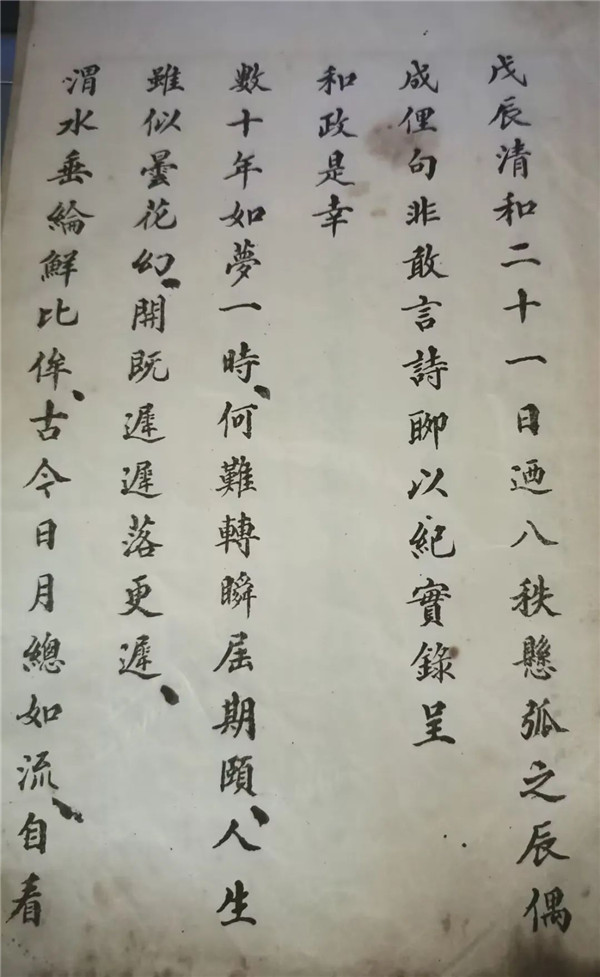 戊辰清和二十一日迺八秩懸弧之辰偶
成俚句非敢言詩聊以紀實錄呈
和政是幸
數十年如夢一時、何難轉瞬屆期頤、人生
雖似曇花幻、開既遲遲落更遲、
渭水垂綸鮮比侔、古今日月總如流、自看